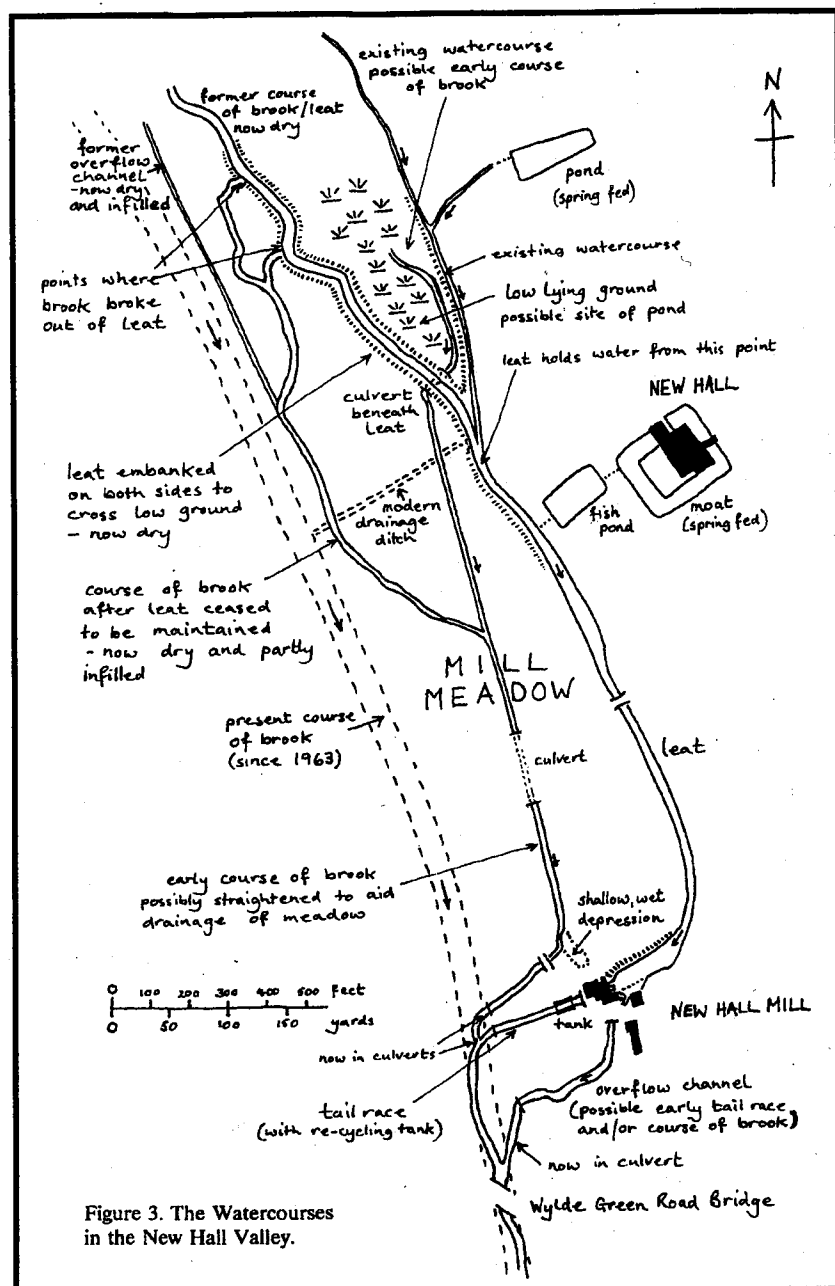 existing watercourse
possible early course
of brook
N
former course
of brook/leat
now dry
former
overflow
channel
-now dry
and infilled
pond
(spring fed)
points where
brook broke
out of leat
existing watercourse
low lying ground
possible site of pond
leat holds water from this point
NEW HALL
culvert
beneath
leat
leat embanked
on both sides to
cross low ground
- now dry
modern
drainage
ditch
fish
pond
moat
(spring fed)
course of brook
after leat ceased
to be maintained
- now dry and partly
infilled
MILL
MEADOW
present course
of brook
(since 1963)
culvert
leat
early course of brook
possibly straightened to aid
drainage of meadow
shallow, wet
depression
0 100 200 300 400 500 feet
0 50 100 150 yards
now in culverts
tank
NEW HALL MILL
tail race
(with re-cycling tank)
overflow channel
(possible early tail race
and/or course of brook)
now in culvert
Wylde Green Road Bridge
Figure 3. The Watercourses
in the New Hall Valley.